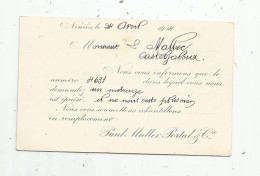 Nérac, le 24 Avril 1911
Monsieur L. Mallec
Casteljaloux
Nous vous informons que le
numéro 4631 dans lequel vous nous
demandez un métrage
est épuisé, il ne nous reste plus rien
Nous vous soumettons échantillons
en remplacement
Paul Muller-Portal & Cie